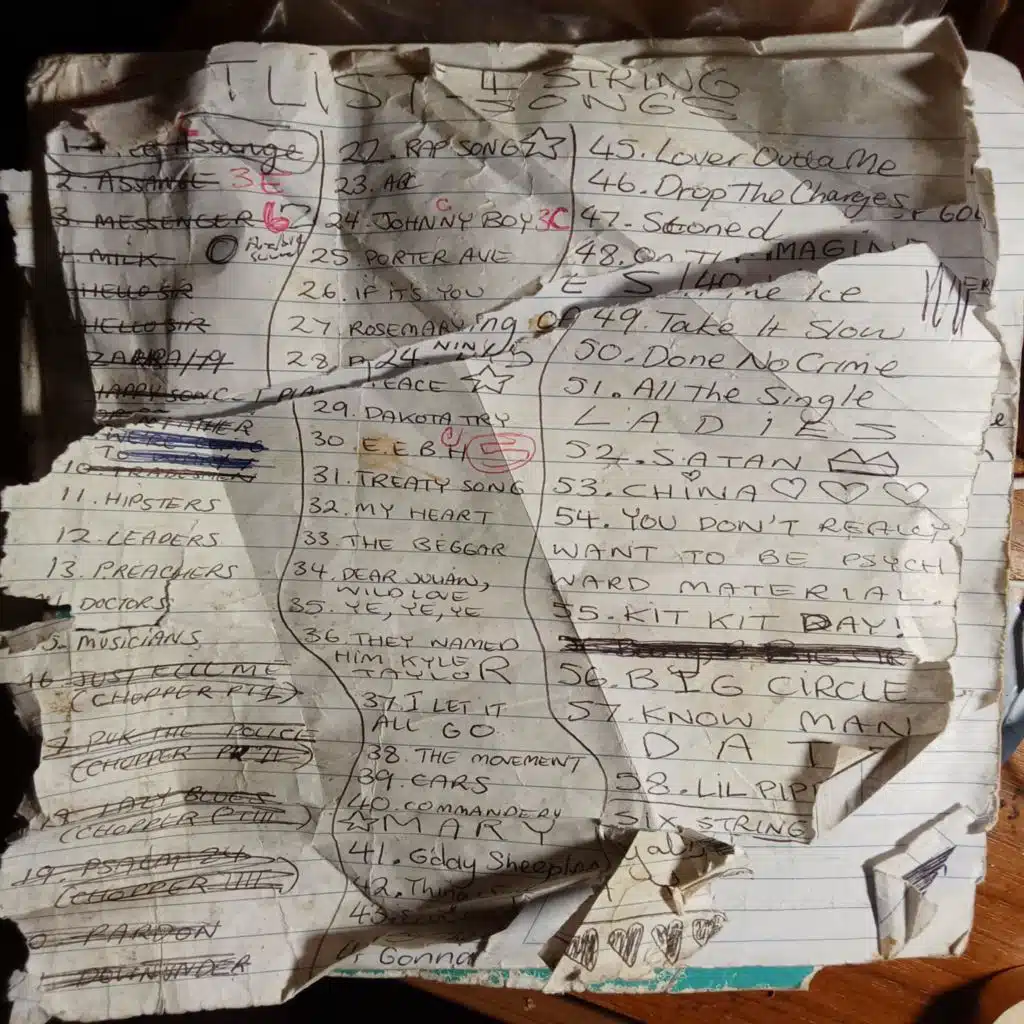 TLIST-4 STRING
SONGS
Assange
2. ASSANGE 3E
3. MESSENGER 6
MILK
HELLO SIR
HELLO SIR
HAPPY SONG
10. TRADESMEN
11. HIPSTERS
12. LEADERS
13. PREACHERS
DOCTORS
15. MUSICIANS
16. JUST TELL ME
(CHOPPER PT I)
THE POLICE
(CHOPPER PT II)
18. LAZY BLUES
(CHOPPER PT III)
19. PSALM 24
(CHOPPER IIII)
PARDON
DOWNUNDER
22. RAP SONG
23. ABC
24. JOHNNY BOY 3C
C
25 PORTER AVE
26. IF IT'S YOU
27. ROSEMARY
28
PEACE
29. DAKOTA TRY
30. E.E.B.H
31. TREATY SONG
32. MY HEART
33. THE BEGGAR
34. DEAR JULIAN,
WILD LOVE
35. YE, YE, YE
36. THEY NAMED
HIM KYLE
TAYLOR
37. I LET IT
ALL GO
38. THE MOVEMENT
39. CARS
40. COMMANDERY
MARY
41. G'day
42.
43.
Gonna
45. Lover Outta Me
46. Drop The Charges
47. Stoned
48. On Th
Ice
49. Take It Slow
50. Done No Crime
51. All The Single
LADIES
52. SATAN
53. CHINA
54. YOU DON'T REALLY
WANT TO BE PSYCH
WARD MATERIAL.
55. KIT KIT DAY!
56. BIG CIRCLE
57. KNOW MAN
DAT
58. LIL PIP
SIX STRING